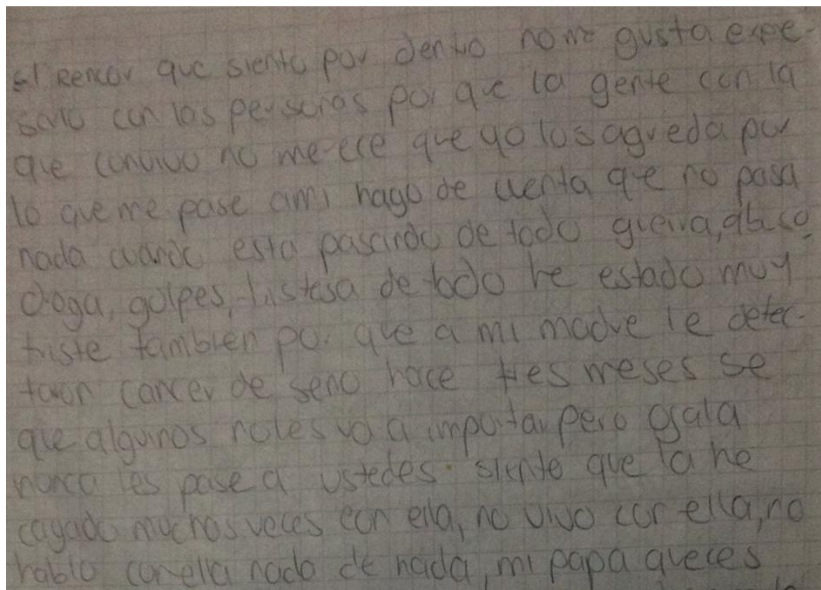 el Rencor que siento por dentro no me gusta expe-
sarlo con las personas por que la gente con la
que convivo no merece que yo los agreda por
lo que me pase ami hago de cuenta que no pasa
nada cuando esta pasando de todo guerra, abuso,
droga, golpes, tristesa de todo he estado muy
triste tambien por que a mi madre le detec-
taron cancer de seno hace tres meses se
que algunos no les va a importar pero ojala
nunca les pase a ustedes. siento que la he
cagado muchas veces con ella, no vivo con ella, no
hablo con ella nada de nada, mi papa aveces